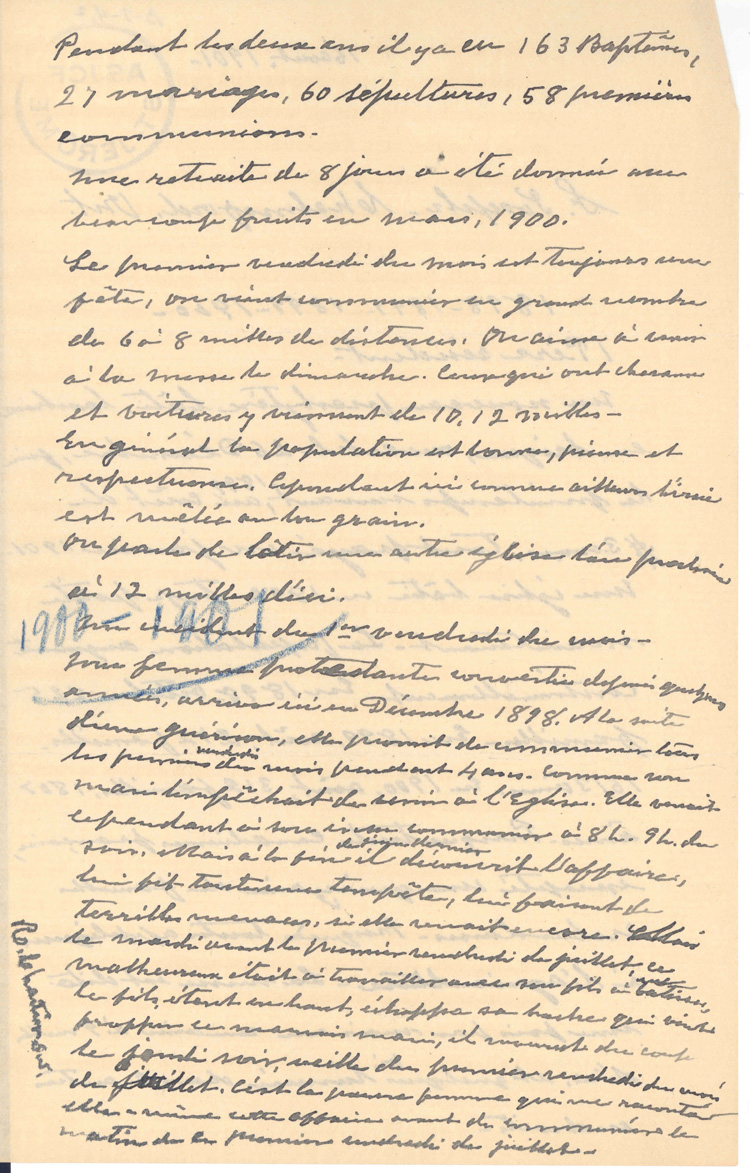 Pendant les deux ans il y a eu 163 Baptêmes,
27 mariages, 60 sépultures, 58 premières
communions.
Une retraite de 8 jours a été donnée avec
beaucoup fruits en mars, 1900.
Le premier vendredi du mois est toujours une
fête, on vient communier en grand nombre
de 6 à 8 milles de distances. On aime à venir
à la messe le dimanche. Ceux qui ont chevaux
et voitures y viennent de 10, 12 milles -
En général la population est bonne, pieuse et
respectueuse. Cependant ici comme ailleurs l'ivraie
est mêlée au bon grain.
On parle de bâtir une autre église l'an prochain
à 12 milles d'ici.
1900 - 1901
Un incident du 1er vendredi du mois -
Une femme protestante convertie depuis quelques
années, arriva ici en Décembre 1898. A la suite
d'une guérison, elle promit de communier tous
les premiers vendredi du mois pendant 4 ans. Comme son
mari l'empêchait de venir à l'Eglise. Elle venait
cependant à communier à 8h. 9h. du
soir. Mais à la fin de juin dernier il découvrit l'affaire,
lui fit toute une tempête, lui faisant de
terribles menaces, si elle venait encore.
le mardi avant le premier vendredi de juillet ce
malheureux était à travailler avec son fils à une bâtisse,
le fils, étant en haut, échappa sa hache qui vint
frapper ce mauvais mari, il mourut du coup
le jeudi soir, veille du premier vendredi du mois
de juillet. C'est la pauvre femme qui me raconta
elle-même cette affaire avant de communier le
matin de ce premier vendredi de juillet -